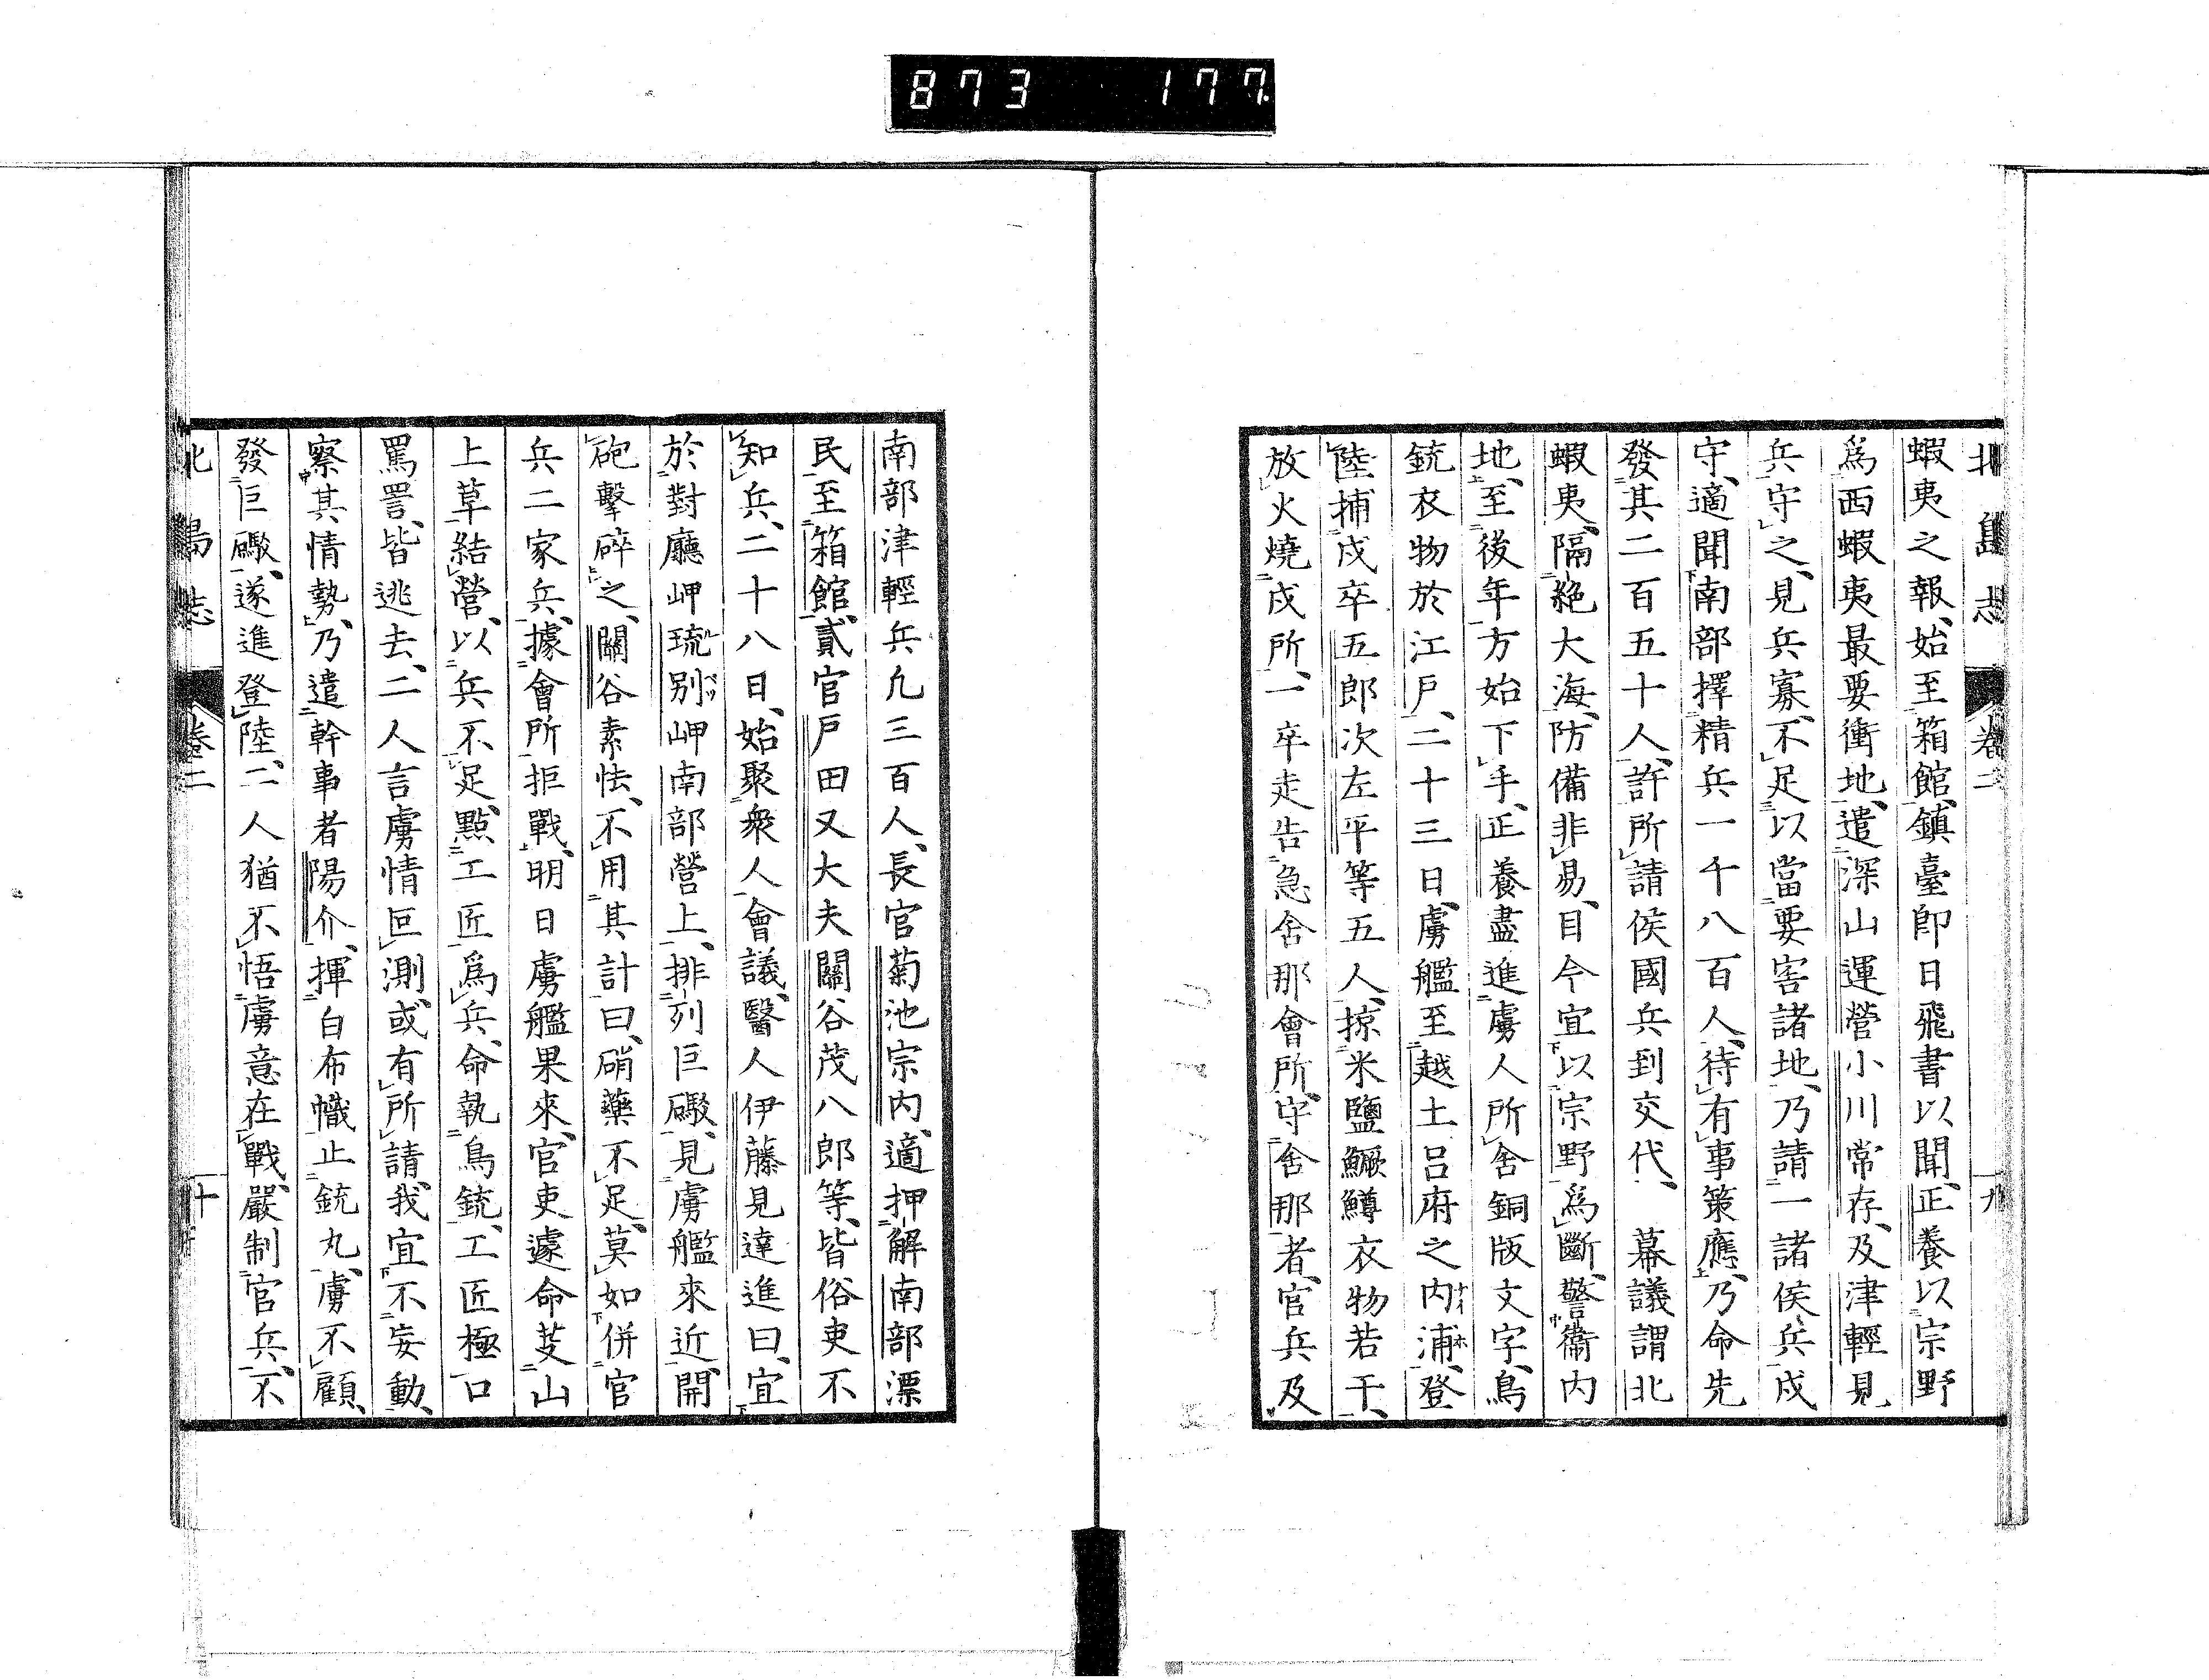 873 177
北島志 卷二 九
蝦夷之報、始至箱館、鎮臺卽日飛書以聞、正養以宗野
爲西蝦夷最要衝地、遣深山運營小川常存、及津輕見
兵守之、見兵寡、不足以當要害諸地、乃請諸侯兵戍
守、適聞南部擇精兵一千八百人、待有事策應、乃命先
發其二百五十人、許所請侯國兵到交代、 幕議謂北
蝦夷、隔絶大海、防備非易、目今宜以宗野爲斷、警衞内
地、至後年方始下手、正養盡進虜人所舍銅版文字、鳥
銃衣物於江戶、二十三日、虜艦至越土呂府之内浦、登
陸捕戍卒五郎次左平等五人、掠米鹽鱖鱒衣物若干、
放火燒戍所、一卒走告急舍那會所、守舍那者、官兵及
南部津輕兵凡三百人、長官菊池宗内、適押解南部漂
民至箱館、貳官戶田又大夫關谷茂八郎等、皆俗吏不
知兵、二十八日、始聚衆人會議、醫人伊藤見達進曰、宜
於對廳岬琉別岬南部營上、排列巨礮、見虜艦來近、開
砲擊碎之、關谷素怯、不用其計曰、硝藥不足、莫如併官
兵二家兵、據會所拒戰、明日虜艦果來、官吏遽命芟山
上草結營、以兵不足、點工匠爲兵、命執鳥銃、工匠極口
罵詈、皆逃去、二人言虜情叵測、或有所請、我宜不妄動、
察其情勢、乃遣幹事者陽介、揮白布幟止銃丸、虜不顧、
發巨礮、遂進登陸、二人猶不悟虜意在戰、嚴制官兵、不
北島志 卷二 十